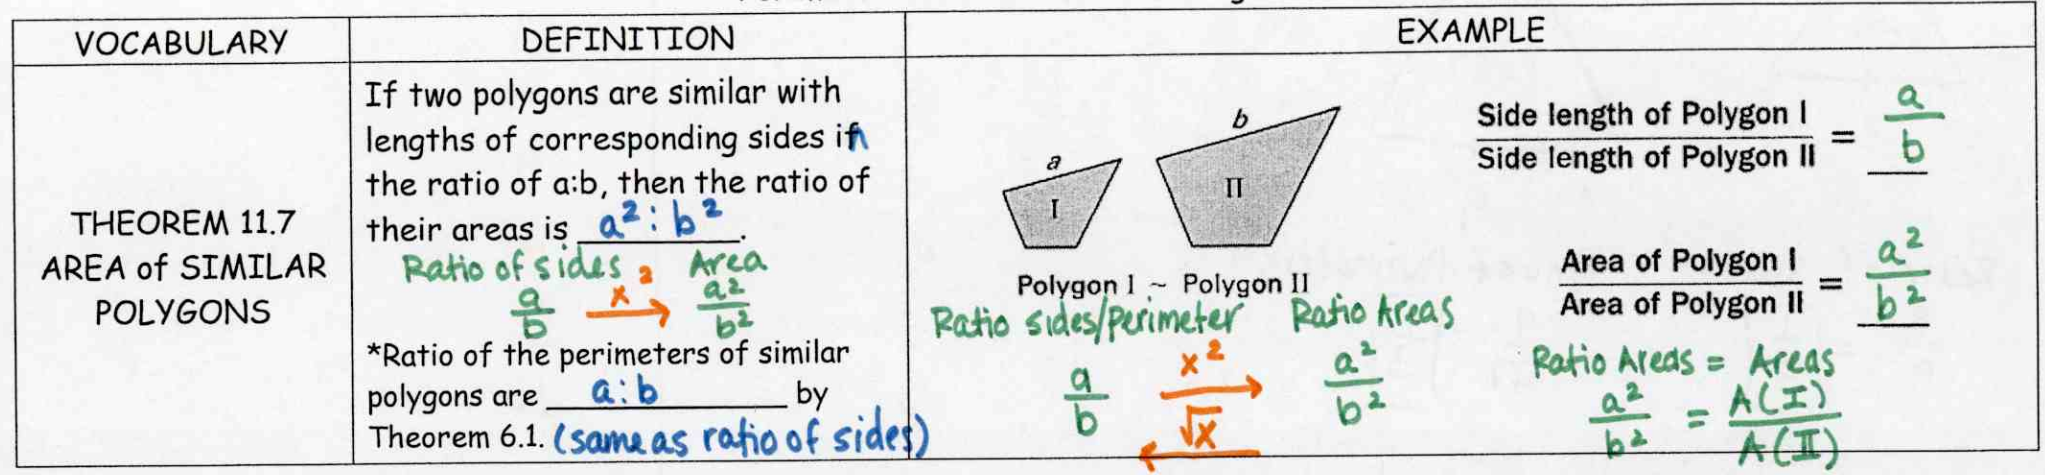 VOCABULARY
DEFINITION
EXAMPLE
THEOREM 11.7
AREA of SIMILAR
POLYGONS
If two polygons are similar with
lengths of corresponding sides in
the ratio of a:b, then the ratio of
their areas is a²:b².
Ratio of sides x² Area
a/b → a²/b²
*Ratio of the perimeters of similar
polygons are a:b by
Theorem 6.1. (same as ratio of sides)
a
I
b
II
Polygon I ~ Polygon II
Ratio sides/perimeter Ratio Areas
a/b x² → a²/b²
√x ←
Side length of Polygon I / Side length of Polygon II = a/b
Area of Polygon I / Area of Polygon II = a²/b²
Ratio Areas = Areas
a²/b² = A(I)/A(II)